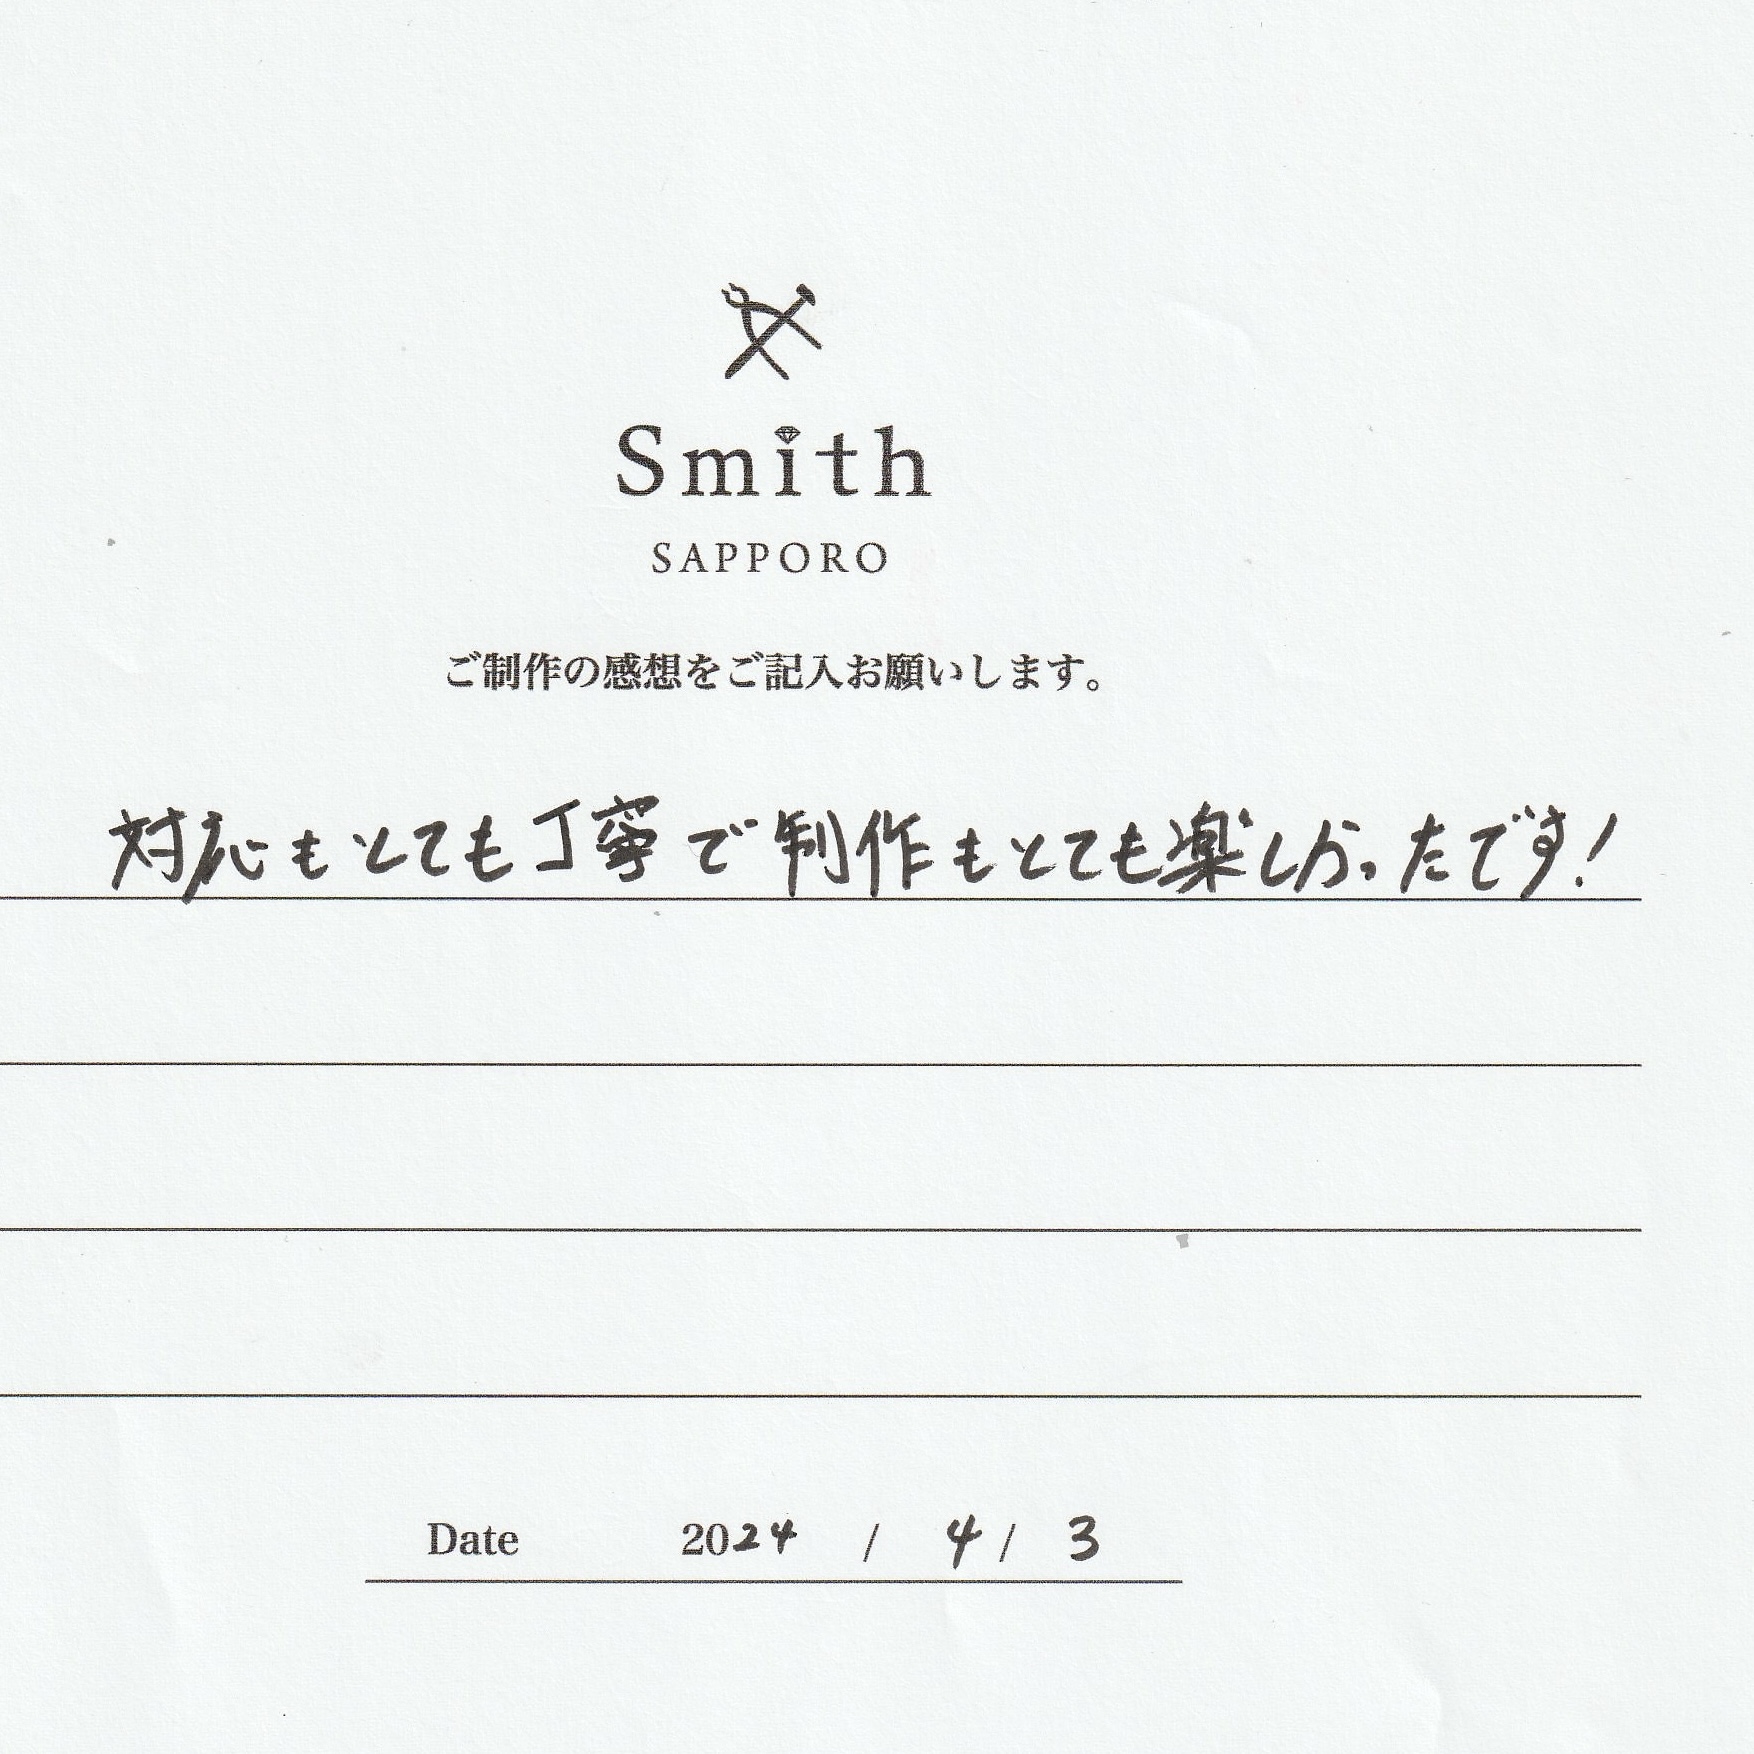 Smith
SAPPORO
ご制作の感想をご記入お願いします。
対応もとても丁寧で制作もとても楽しかったです!
Date 2024 / 4 / 3